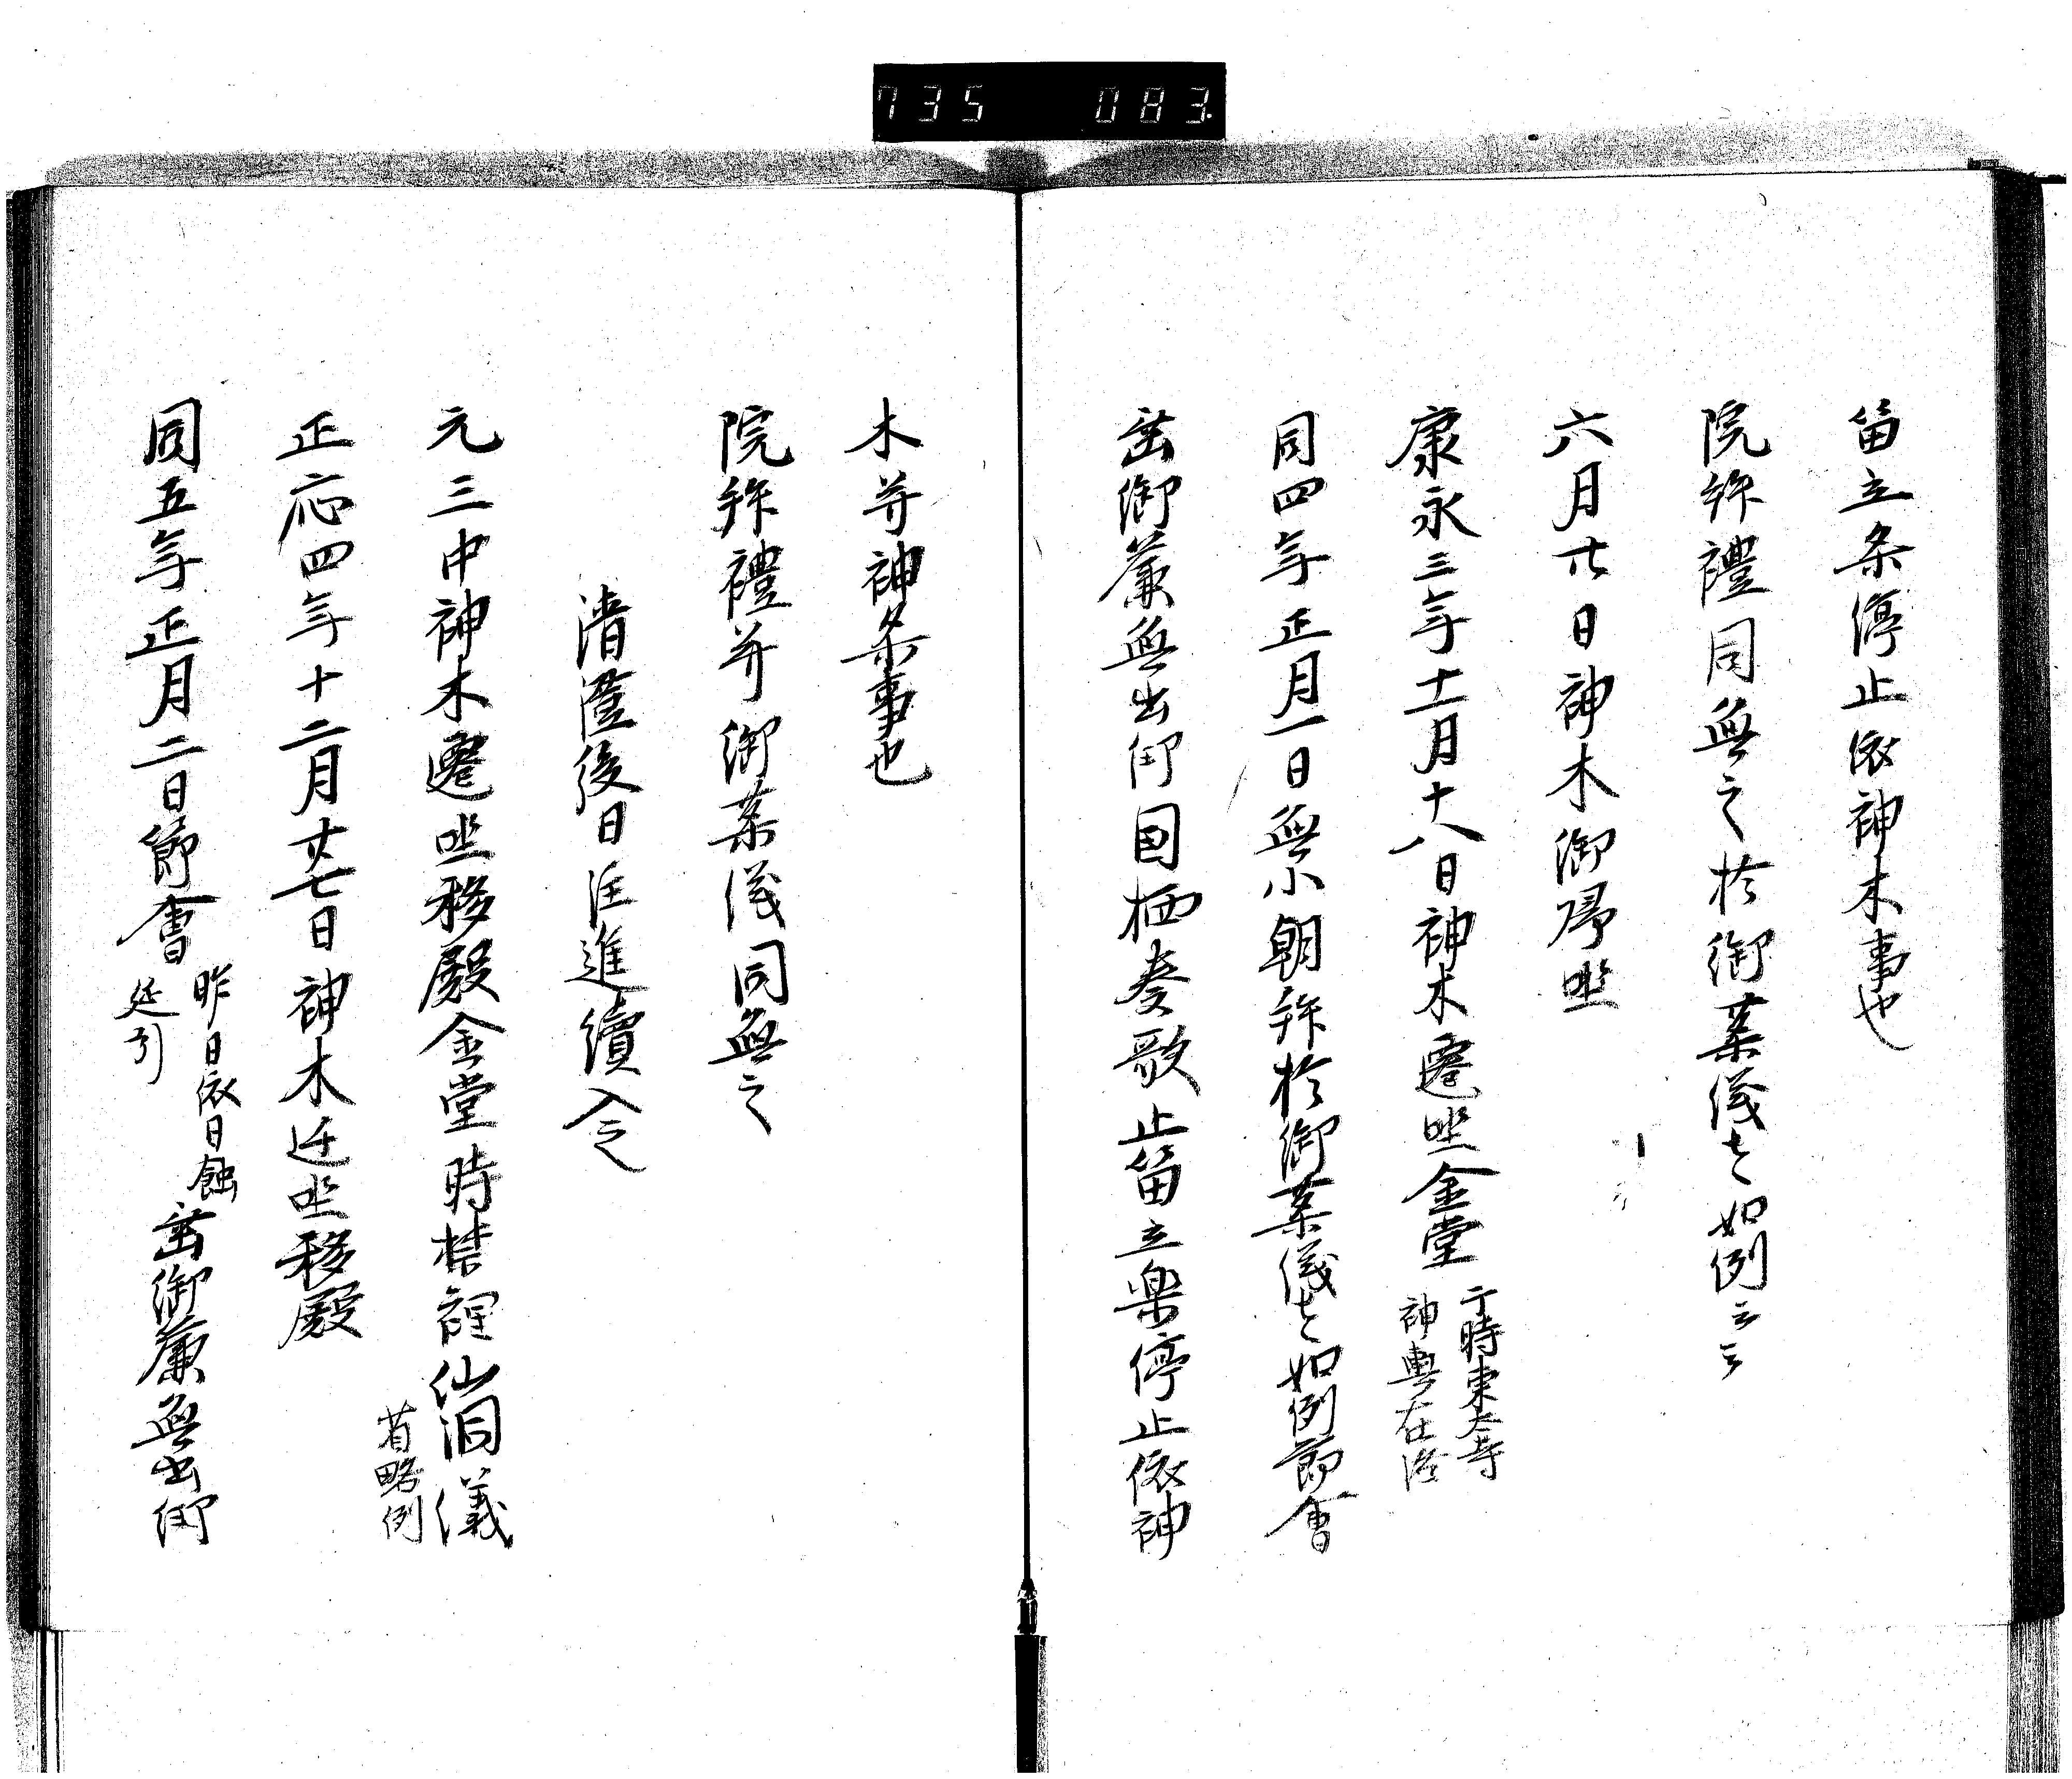 735 083.
笛立楽停止依神木事也
院拜禮同無之於御薬儀者如例云々
六月廿日神木御帰坐
康永三年十一月十八日神木遷坐金堂于時東大寺
神輿在洛
同四年正月一日無小朝拜於御薬儀者如例節會
垂御簾無出御国栖奏歌止笛立楽停止依神
木并神条事也
院拜禮并御薬儀同無之
清澄後日注進續入之
元三中神木遷坐移殿金堂時禁裡仙洞儀
省略例
正応四年十二月廿七日神木迁坐移殿
同五年正月二日節會昨日依日蝕
延引垂御簾無出御